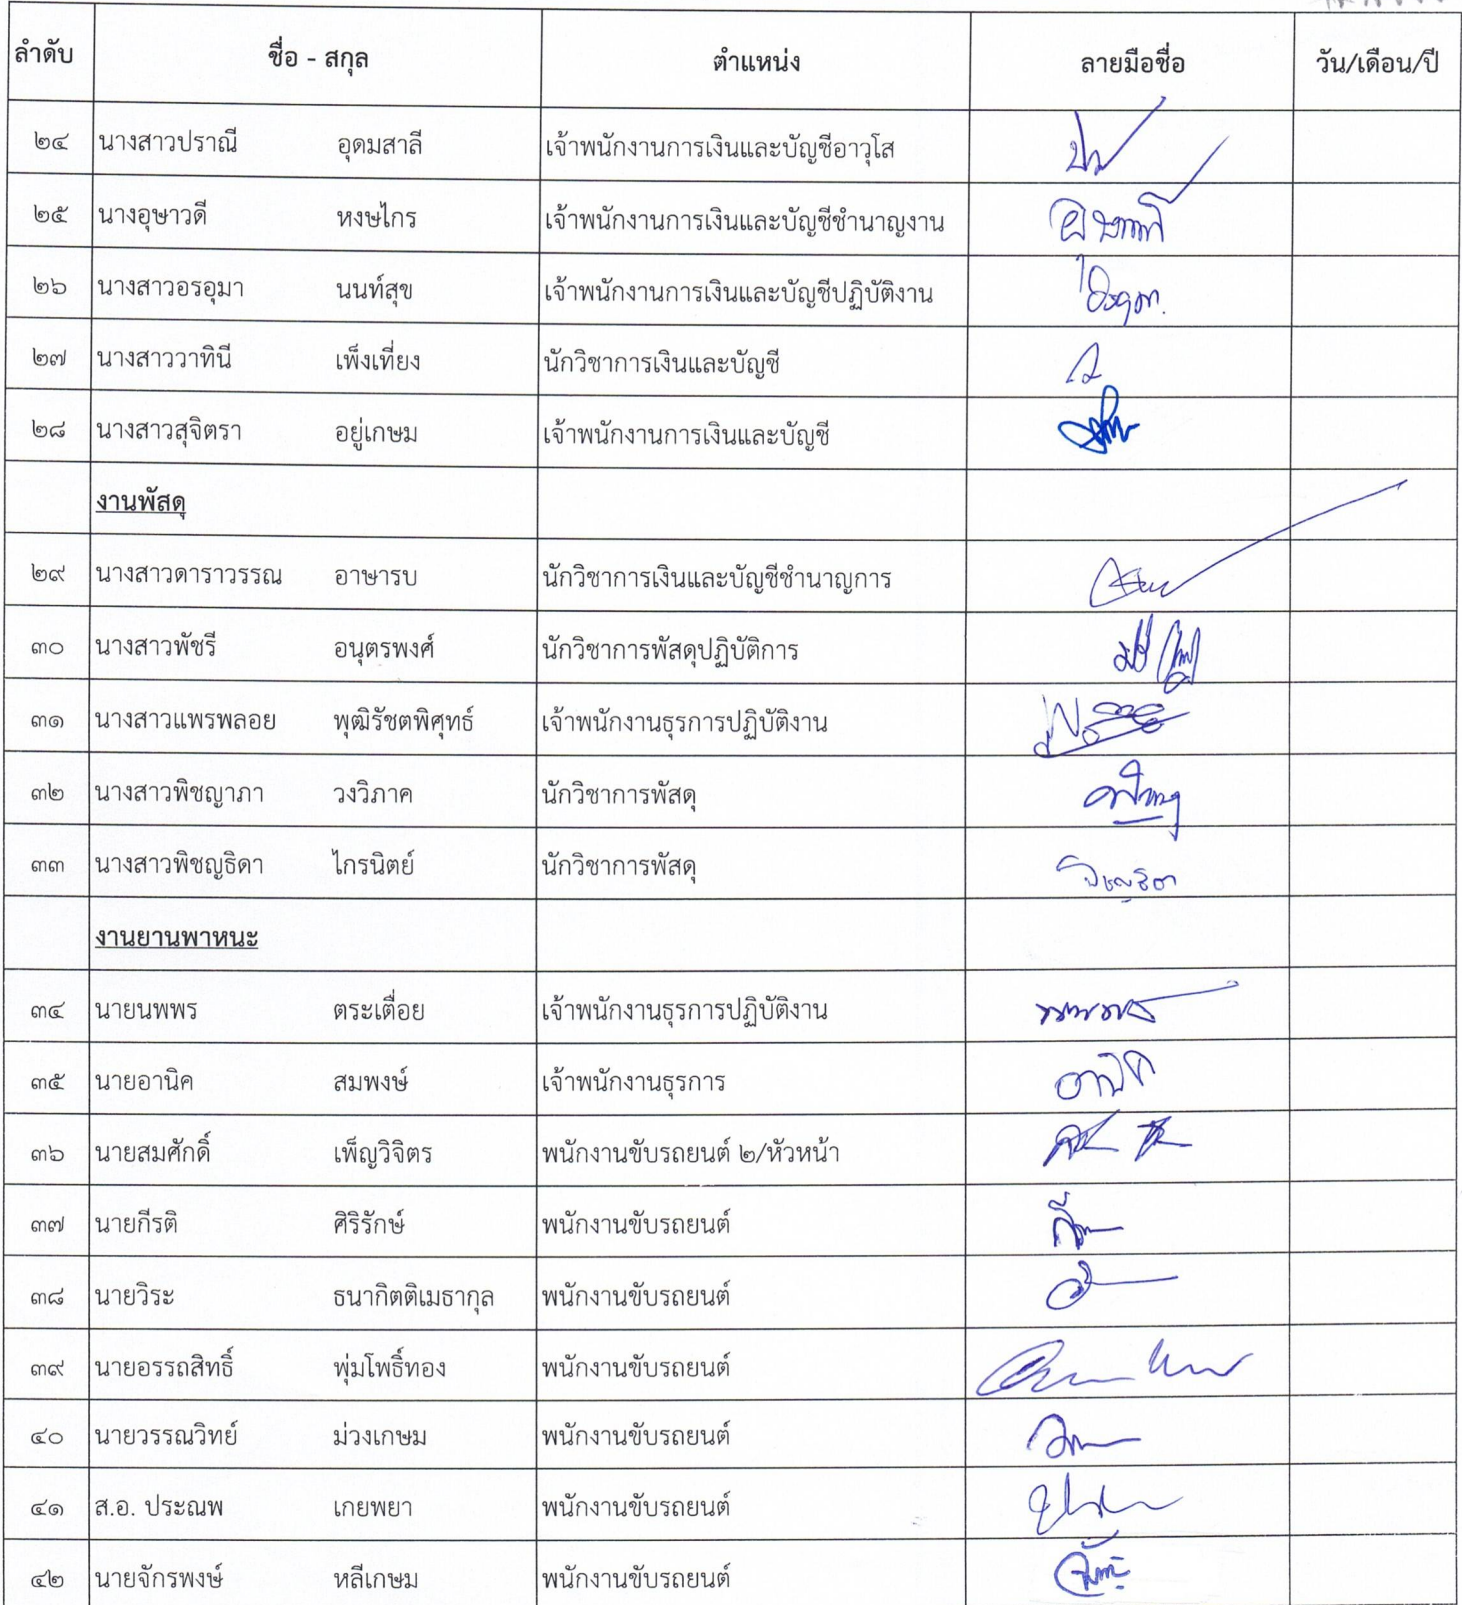 ลำดับ ชื่อ - สกุล ตำแหน่ง ลายมือชื่อ วัน/เดือน/ปี
๒๔ นางสาวปราณี อุดมสาลี เจ้าพนักงานการเงินและบัญชีอาวุโส
๒๕ นางอุษาวดี หงษไกร เจ้าพนักงานการเงินและบัญชีชำนาญงาน
๒๖ นางสาวอรอุมา นนท์สุข เจ้าพนักงานการเงินและบัญชีปฏิบัติงาน
๒๗ นางสาววาทินี เพ็งเที่ยง นักวิชาการเงินและบัญชี
๒๘ นางสาวสุจิตรา อยู่เกษม เจ้าพนักงานการเงินและบัญชี
งานพัสดุ
๒๙ นางสาวดาราวรรณ อาษารบ นักวิชาการเงินและบัญชีชำนาญการ
๓๐ นางสาวพัชรี อนุตรพงศ์ นักวิชาการพัสดุปฏิบัติการ
๓๑ นางสาวแพรพลอย พุฒิรัชตพิศุทธ์ เจ้าพนักงานธุรการปฏิบัติงาน
๓๒ นางสาวพิชญาภา วงวิภาค นักวิชาการพัสดุ
๓๓ นางสาวพิชญธิดา ไกรนิตย์ นักวิชาการพัสดุ พิชญธิดา
งานยานพาหนะ
๓๔ นายนพพร ตระเตื่อย เจ้าพนักงานธุรการปฏิบัติงาน
๓๕ นายอานิค สมพงษ์ เจ้าพนักงานธุรการ อานิค
๓๖ นายสมศักดิ์ เพ็ญวิจิตร พนักงานขับรถยนต์ ๒/หัวหน้า
๓๗ นายกีรติ ศิริรักษ์ พนักงานขับรถยนต์
๓๘ นายวิระ ธนากิตติเมธากุล พนักงานขับรถยนต์
๓๙ นายอรรถสิทธิ์ พุ่มโพธิ์ทอง พนักงานขับรถยนต์
๔๐ นายวรรณวิทย์ ม่วงเกษม พนักงานขับรถยนต์
๔๑ ส.อ. ประณพ เกยพยา พนักงานขับรถยนต์
๔๒ นายจักรพงษ์ หลีเกษม พนักงานขับรถยนต์